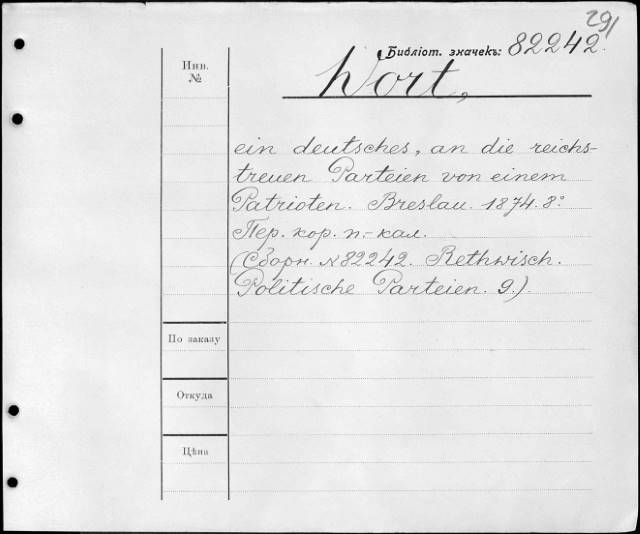 291
Библіот. значекъ: 82242.
Инв.
№
Wort,
ein deutsches, an die reichs-
treuen Parteien von einem
Patrioten. Breslau. 1874. 8°
Пер. кор. п.-кал.
(Сборн. №82242. Rethwisch.
Politische Parteien. 9.)
По заказу
Откуда
Цѣна